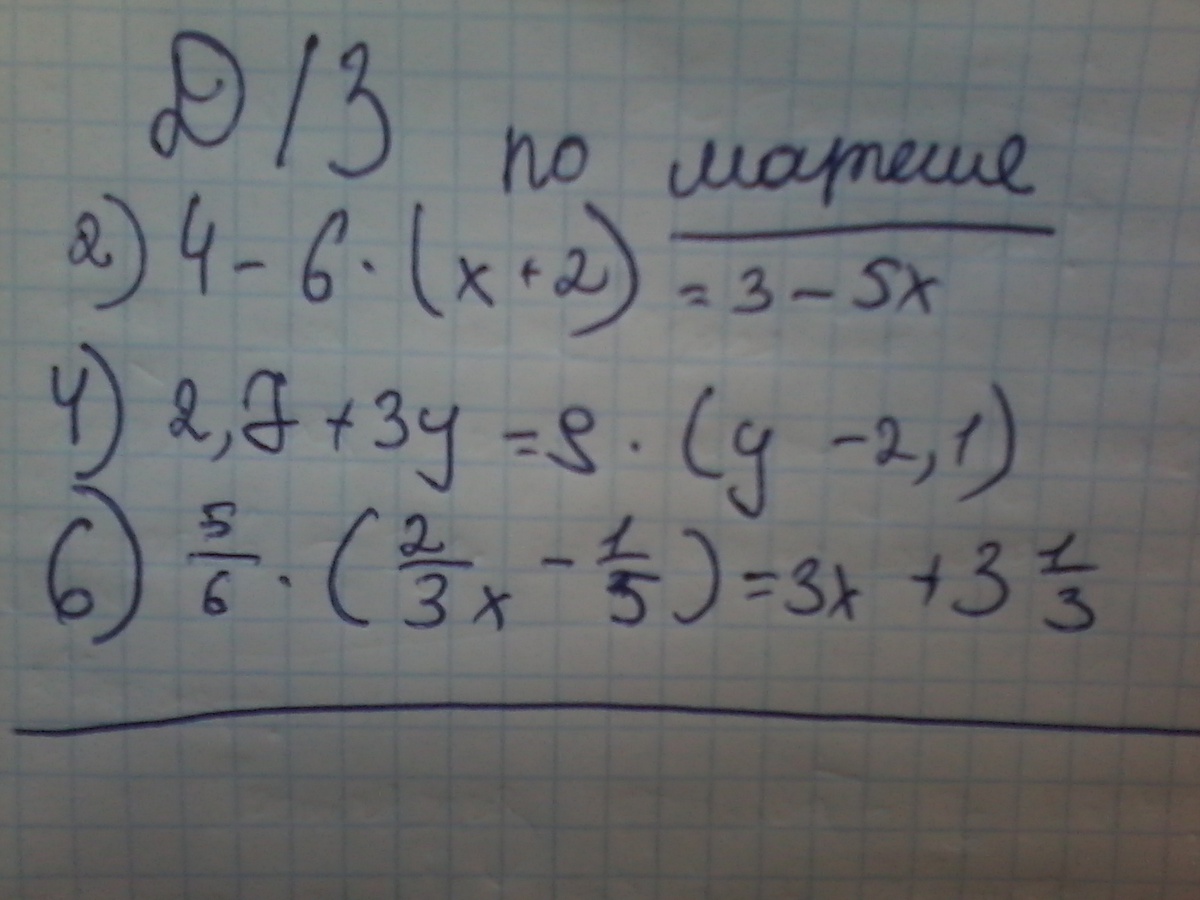 Д/З
по матеше
2) 4 - 6 · (x + 2) = 3 - 5x
4) 2,7 + 3y = 9 · (y - 2,1)
6) 5/6 · (2/3 x - 1/5) = 3x + 3 1/3